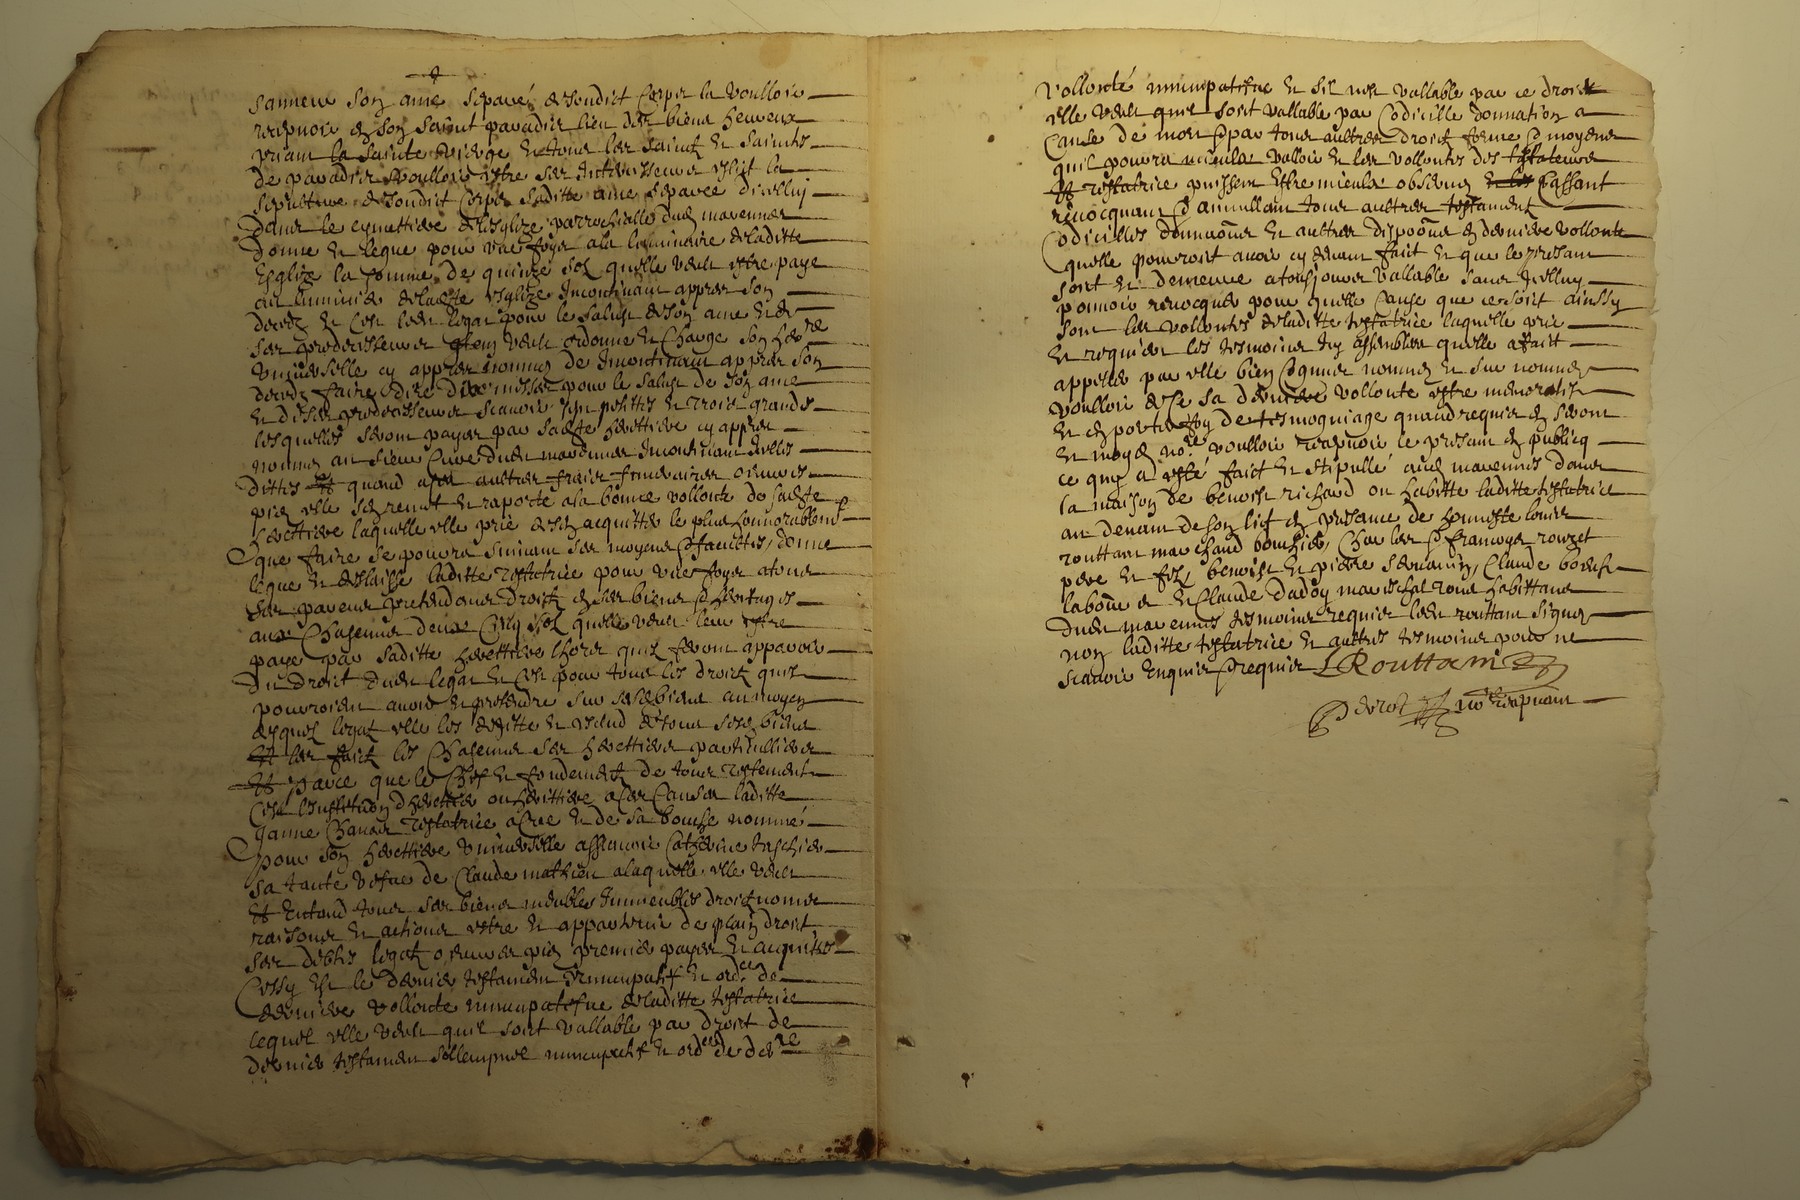 sanneue son ame separeé desondict Corps la voulloir
recepuoir en son sainct paradis lieu des biens heureux
priant la sainte vierge et tous les saintz et saintes
de paradis voulloir estre ses intersesseurs eslit la
sepulture desondict Corps saditte ame separee dicelluy
dans le cymettiere delesglize parrochialle dud marennes
donne et legue pour vne foys ala luminaire deladitte
Esglize la somme de quinze solz quelle veult estre paye
au luminier deladte esglize Incontinant appres son
deces et cest led legat pour le salut deson ame et de
ses predecesseurs Item veult ordonne et Charge son here
vniuerselle cy appres nommee de Incontinant appres son
deces faire dire dixe messes pour le salut de son ame
et de ses predecesseurs scauoir sept petittes et trois grandes
lesquelles seront payes par sadte herettiere cy appres
nommee au sieur Cure dud marennes Incontinant icelles
dittes et quand aux aultres fraix funeraires oeuures
pies elle sen remet et raporte ala bonne vollonte de sadte
herettiere laquelle elle prie desen acquitter le plus honnorablemt
que faire se pourra suiuant ses moyens et facultes, donne
legue et delaisse laditte testatrice pour vne foys atous
ses parens pretendans droictz en ses biens et heritages
aux Chascungs deux Cinq solz quelle veult leur estre
paye par saditte herettiere lhors quilz feront apparoir
du droict dud legat et cest pour tous les droictz quilz
pourroient auoir et pretendre sur sesdz biens au moyen
desquelz legatz elle les degitte et exclud de tous sesdz biens
et les faict les Chascungs ses herettiers particulliers
Et parce que le Chef et fondement de tous testement
Cest linstitution dherettier ou herittiere acez Causes laditte
Janne Chanas testatrice acree et de sa bouche nommé
pour son herettiere vniuerselle assauoir Catherine
sa tante vefue de Claude mathieu alaquelle elle veult
Et Entend tous ses biens meubles Immeubles droictz noms
raisons et actions estre et appartenir de plain droict
ses debtes legatz oeuures pies premier payes et acquittes
Cessy est le dernier testament nuncupatif et ordce de
derniere vollonte nuncupatifue deladitte testatrice
lequel elle veult quil soit vallable par droict de
dernier testament sollempnel nuncupatif et ordce de derre
vollonté nuncupatifue et sil nest vallable par ce droict
elle veult quil soit vallable par Codicille donnation a
Cause de mort et par tous aultres droictz forme et moyens
quil pourra mieulx valloir et les vollontes des testateurs
et testatrice puissent Estre mieulx obserues Cassant
reuocquant et annullant tous aultres testament
Codicilles donnaons et aultres dispoons de derniere vollonte
quelle pourroit auoir cy deuant faict et que le presant
soit et demeure atousjours vallable sans icelluy
pouuoir reuocquer pour quelle Cause que ce soit ainssy
sont les vollontes deladitte testatrice laquelle prie
et requier les tesmoins icy assembles quelle a faict
appelles par elle bien Cogneus nommes et sur nommes
voulloir de Ce sa derniere vollonte estre memoratifz
et en porter foy de tesmoignage quand requier en seront
et moy no.re voulloir recepuoir le presant en publicq
ce quy a esté faict et stipullé aud marennes dans
la maison de benoist richard ou habitte laditte testatrice
au deuant de son lict en presance de honneste louis
routtant marchand bouchier, Charles et francoys rouzet
pere et filz, benoist et pierre Claude boeuf
labour et Claude dadoy mareschal tous habittans
dud marennes tesmoins requier led routtant signer
non laditte testatrice et aultres tesmoins pour ne
scauoir Enquier et requier L Routtant
no.re recepuant